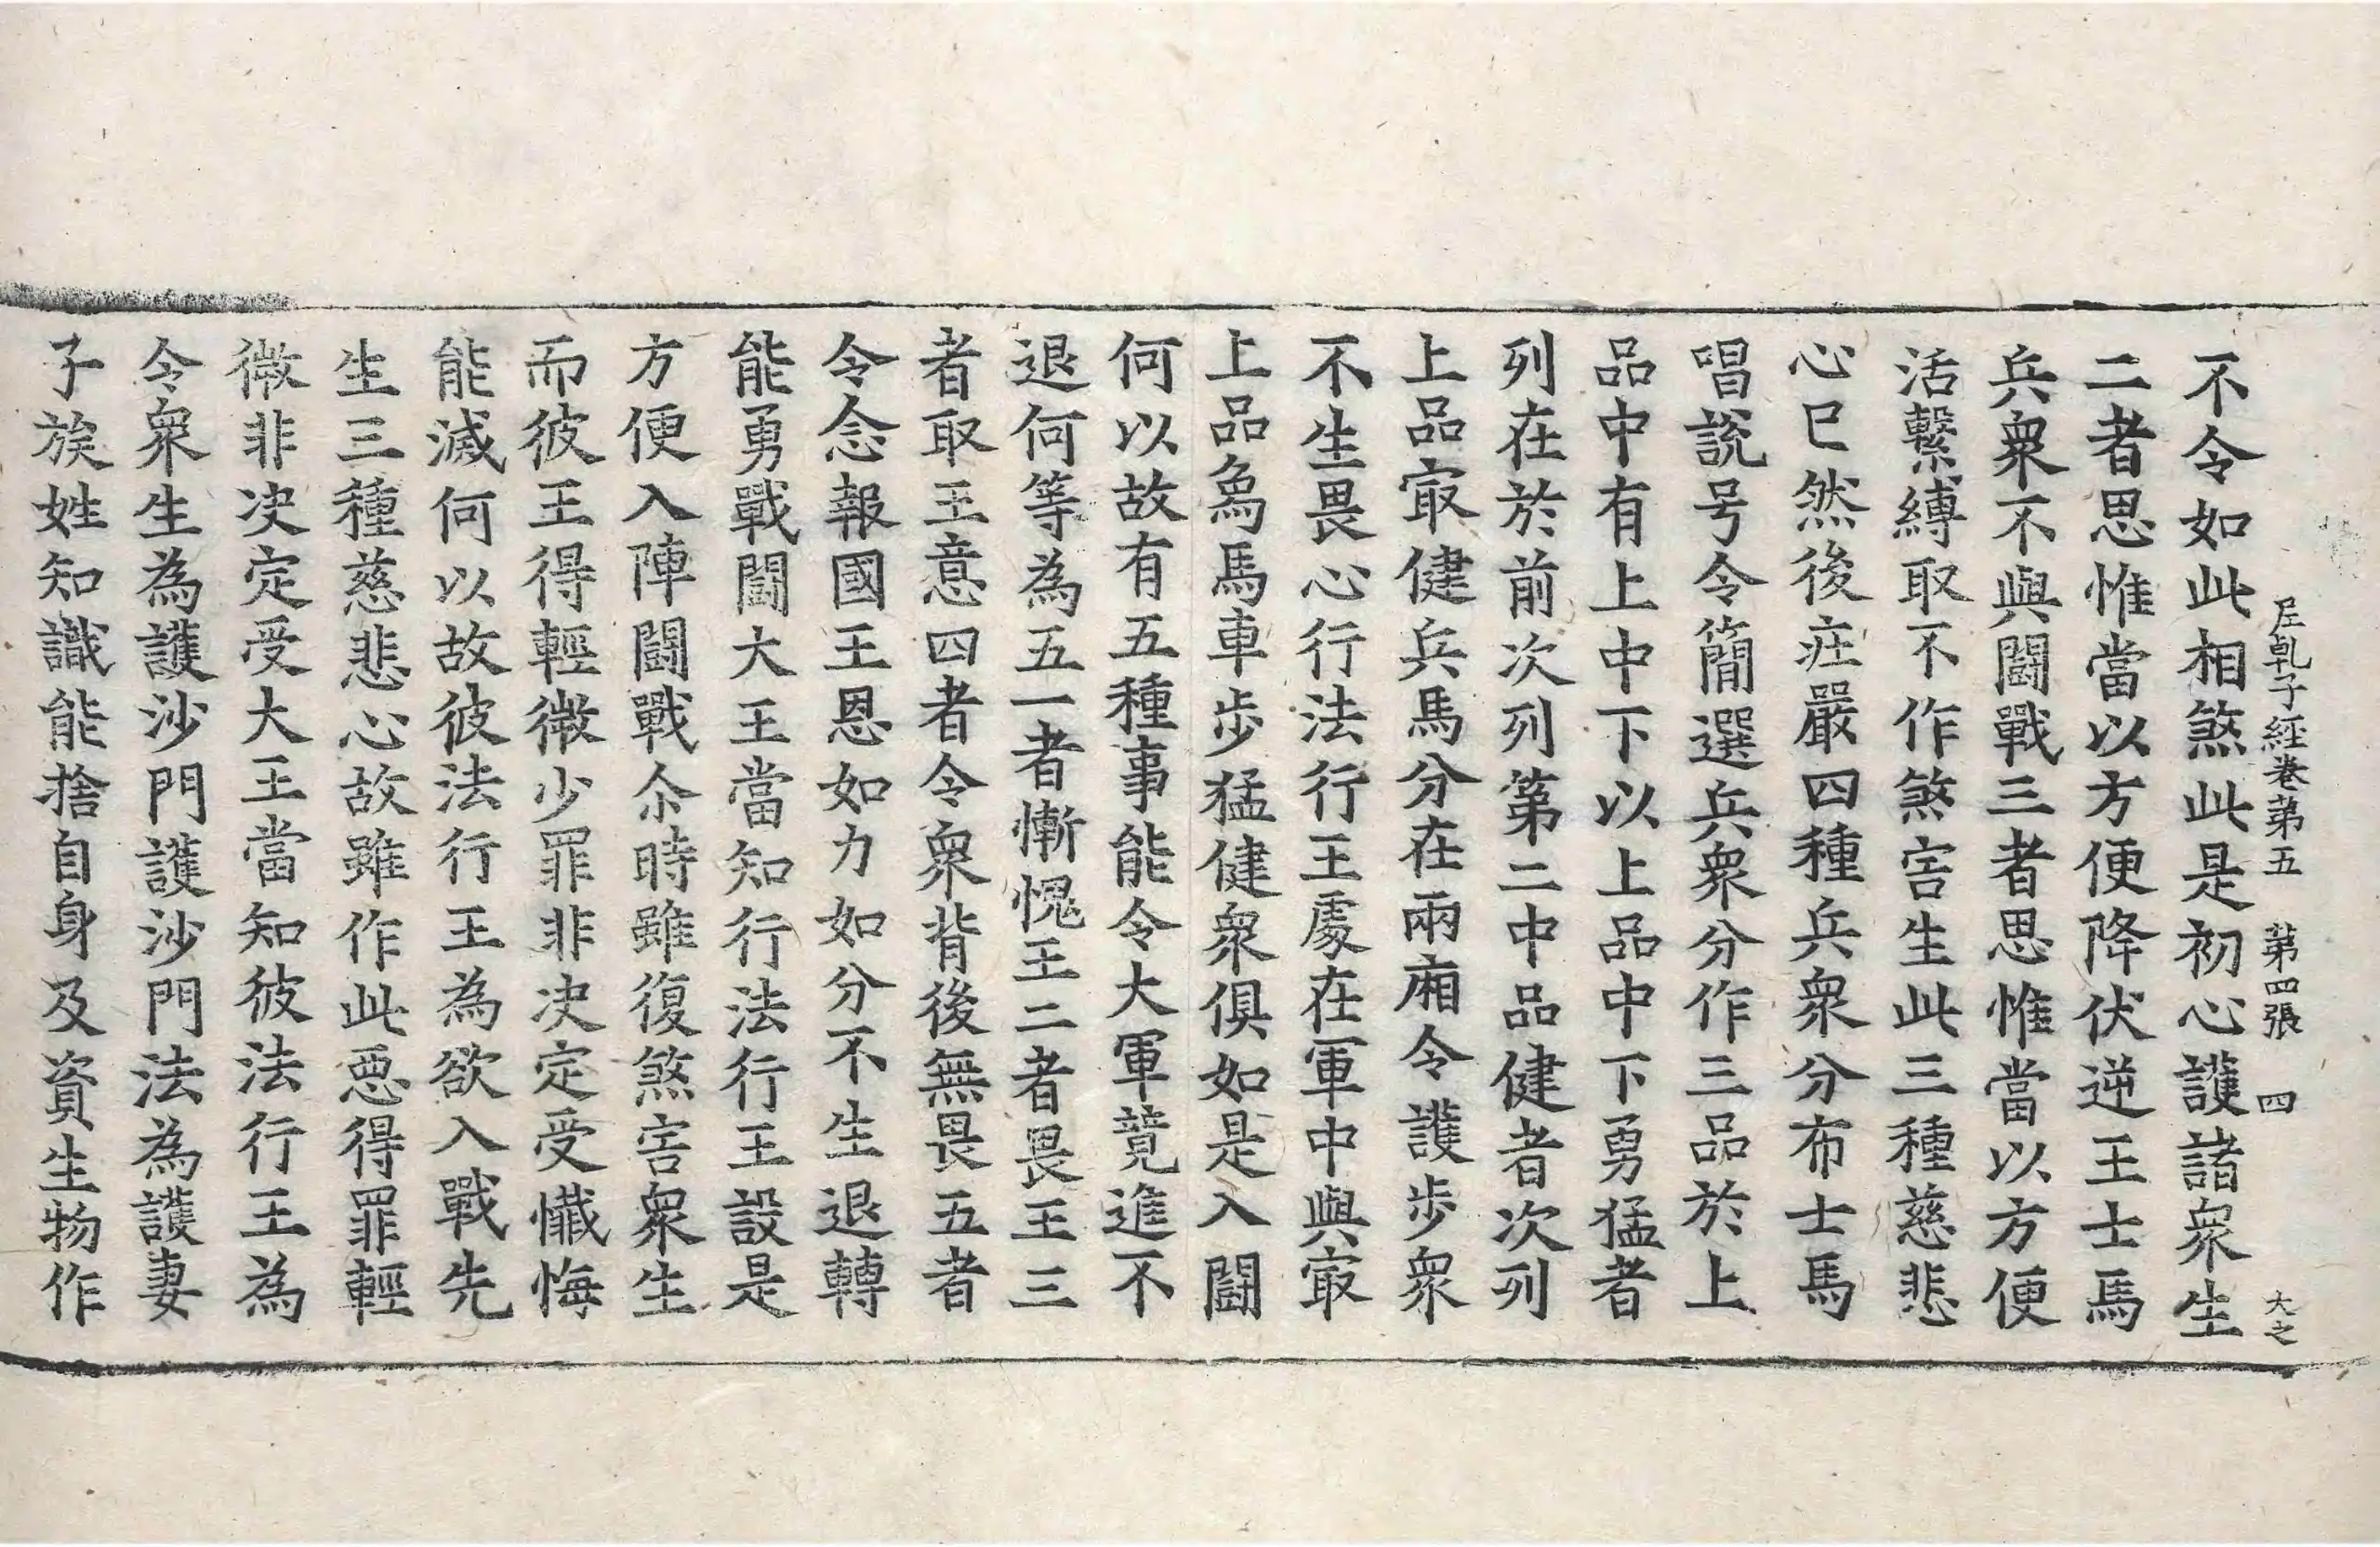 尼乹子經卷第五 第四張 四 大之
不令如此相煞此是初心護諸衆生
二者思惟當以方便降伏逆王士馬
兵衆不與闘戰三者思惟當以方便
活繫縛取不作煞害生此三種慈悲
心已然後庄嚴四種兵衆分布士馬
唱說号令簡選兵衆分作三品於上
品中有上中下以上品中下勇猛者
列在於前次列第二中品健者次列
上品㝡健兵馬分在兩廂令護步衆
不生畏心行法行王處在軍中與㝡
上品象馬車步猛健衆俱如是入闘
何以故有五種事能令大軍竟進不
退何等為五一者慚愧王二者畏王三
者取王意四者令衆背後無畏五者
令念報國王恩如力如分不生退轉
能勇戰闘大王當知行法行王設是
方便入陣闘戰尒時雖復煞害衆生
而彼王得輕微少罪非决定受懺悔
能滅何以故彼法行王為欲入戰先
生三種慈悲心故雖作此惡得罪輕
微非决定受大王當知彼法行王為
令衆生為護沙門護沙門法為護妻
子族姓知識能捨自身及資生物作